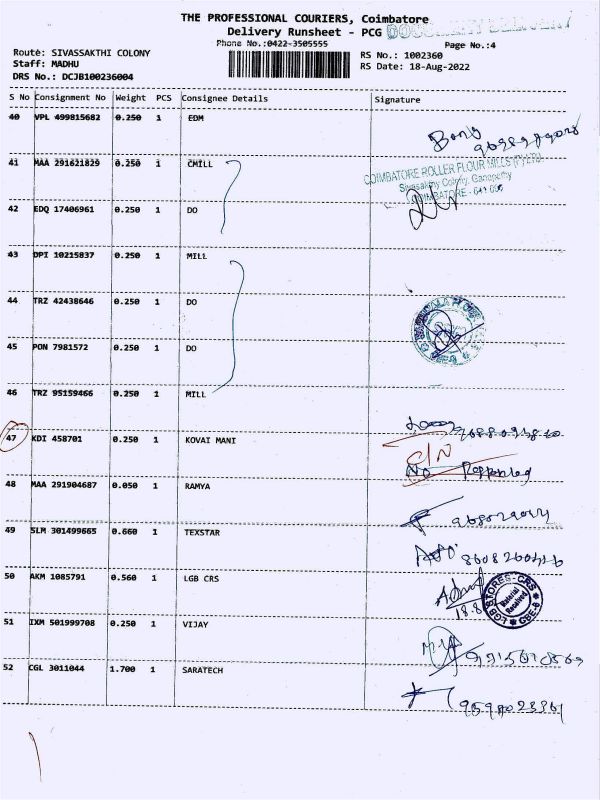 THE PROFESSIONAL COURIERS, Coimbatore
Delivery Runsheet - PCG DOCUMENT DELIVERY
Phone No.:0422-3505555 Page No.:4
Route: SIVASSAKTHI COLONY RS No.: 1002360
Staff: MADHU RS Date: 18-Aug-2022
DRS No.: DCJB100236004
S No Consignment No Weight PCS Consignee Details Signature
40 VPL 499815682 0.250 1 EDM
41 MAA 291621829 0.250 1 CMILL
COIMBATORE ROLLER FLOUR MILLS (P) LTD
Sivasakthy Colony, Ganapathy
COIMBATORE - 641 006
42 EDQ 17406961 0.250 1 DO
43 DPI 10215837 0.250 1 MILL
44 TRZ 42438646 0.250 1 DO
45 PON 7981572 0.250 1 DO
46 TRZ 95159466 0.250 1 MILL
47 KDI 458701 0.250 1 KOVAI MANI
C/N
No
48 MAA 291904687 0.050 1 RAMYA
49 SLM 301499665 0.660 1 TEXSTAR
50 AKM 1085791 0.560 1 LGB CRS
LGB STORES-CRS
Material
Received
CBE-6
18.8
51 IXM 501999708 0.250 1 VIJAY
52 CGL 3011044 1.700 1 SARATECH